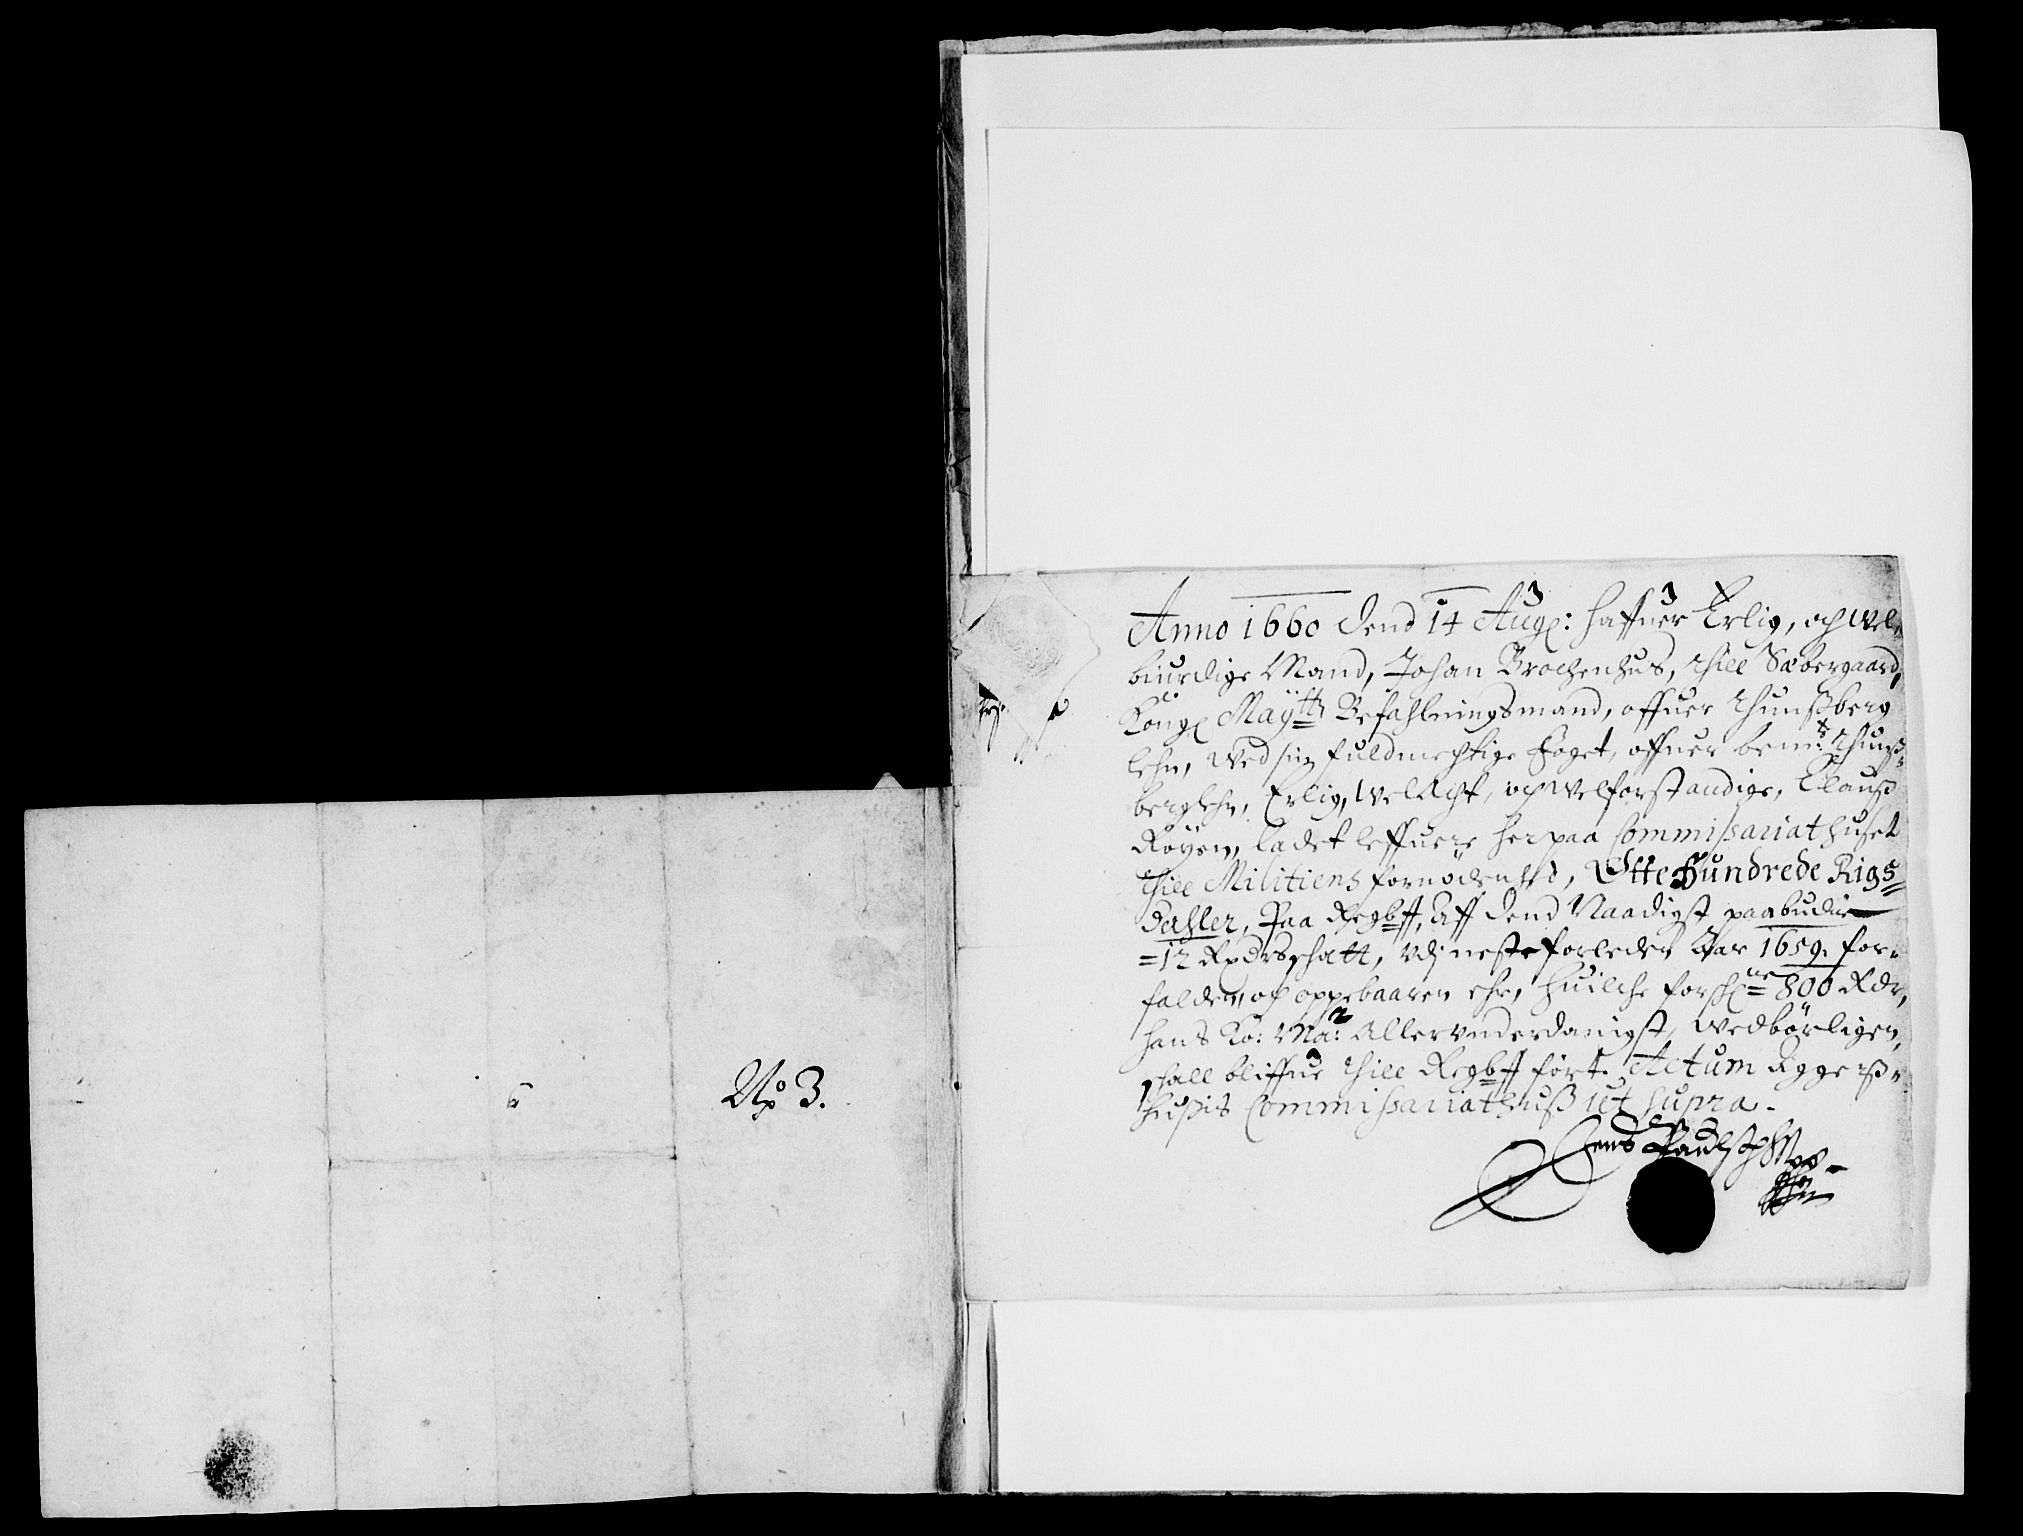 No 3.
Anno 1660 Dend 14 Aug: haffuer Erlig, och Wel-
buurdige Mand, Johan Brochenhus, thill Sæbergaard,
Kongl Maytts Befahlningsmand, offuer Thunßberg
lehn, Wed sin fuldmechtige Foget, offuer bemte Thunß-
berg lehn, Erlig, Wel Acht, och Welforstandige, Clauß
Röyem, ladet leffuere her paa Commissariathuset
thill Militiens fornödenhd, Otte Hundrede Rigs=
Dahler, Paa Regbsk, Aff dend Naadigst paabudne
=12 Rxdrs schatt, vdj neste forleden Aar 1659. for-
falden, och oppebaaren ehr, huilche forschne= 800 Rdr,
hans Ko: Ma: Allervnderdanigst, wedbörligen,
schall bliffue thill Regbsk fört. Actum Aggerß-
hußis Commissariathuß ut supra.